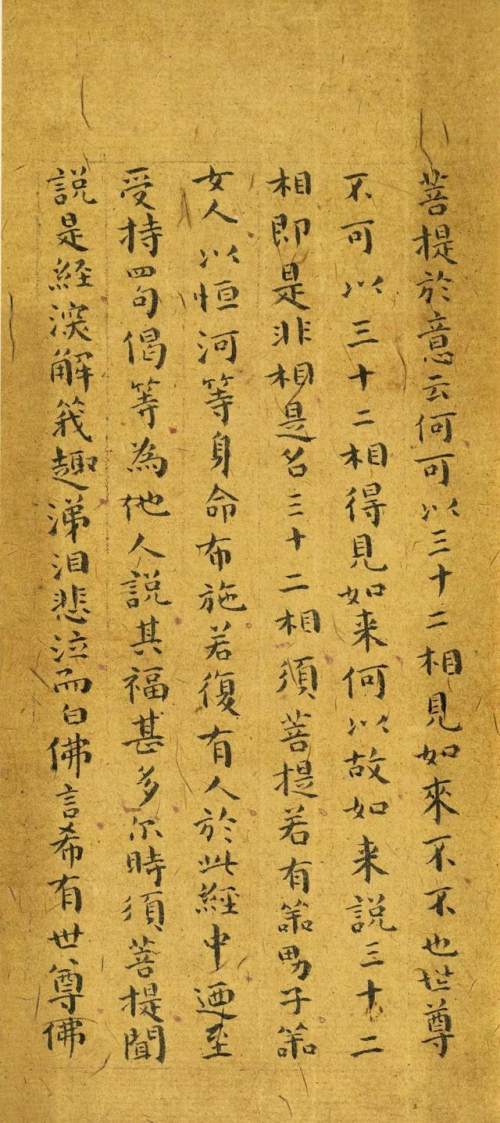 菩提於意云何可以三十二相見如來不不也世尊
不可以三十二相得見如来何以故如来説三十二
相即是非相是名三十二相須菩提若有善男子善
女人以恒河等身命布施若復有人於此經中迺至
受持四句偈等為他人説其福甚多尒時須菩提聞
説是經深解義趣涕泪悲泣而白佛言希有世尊佛